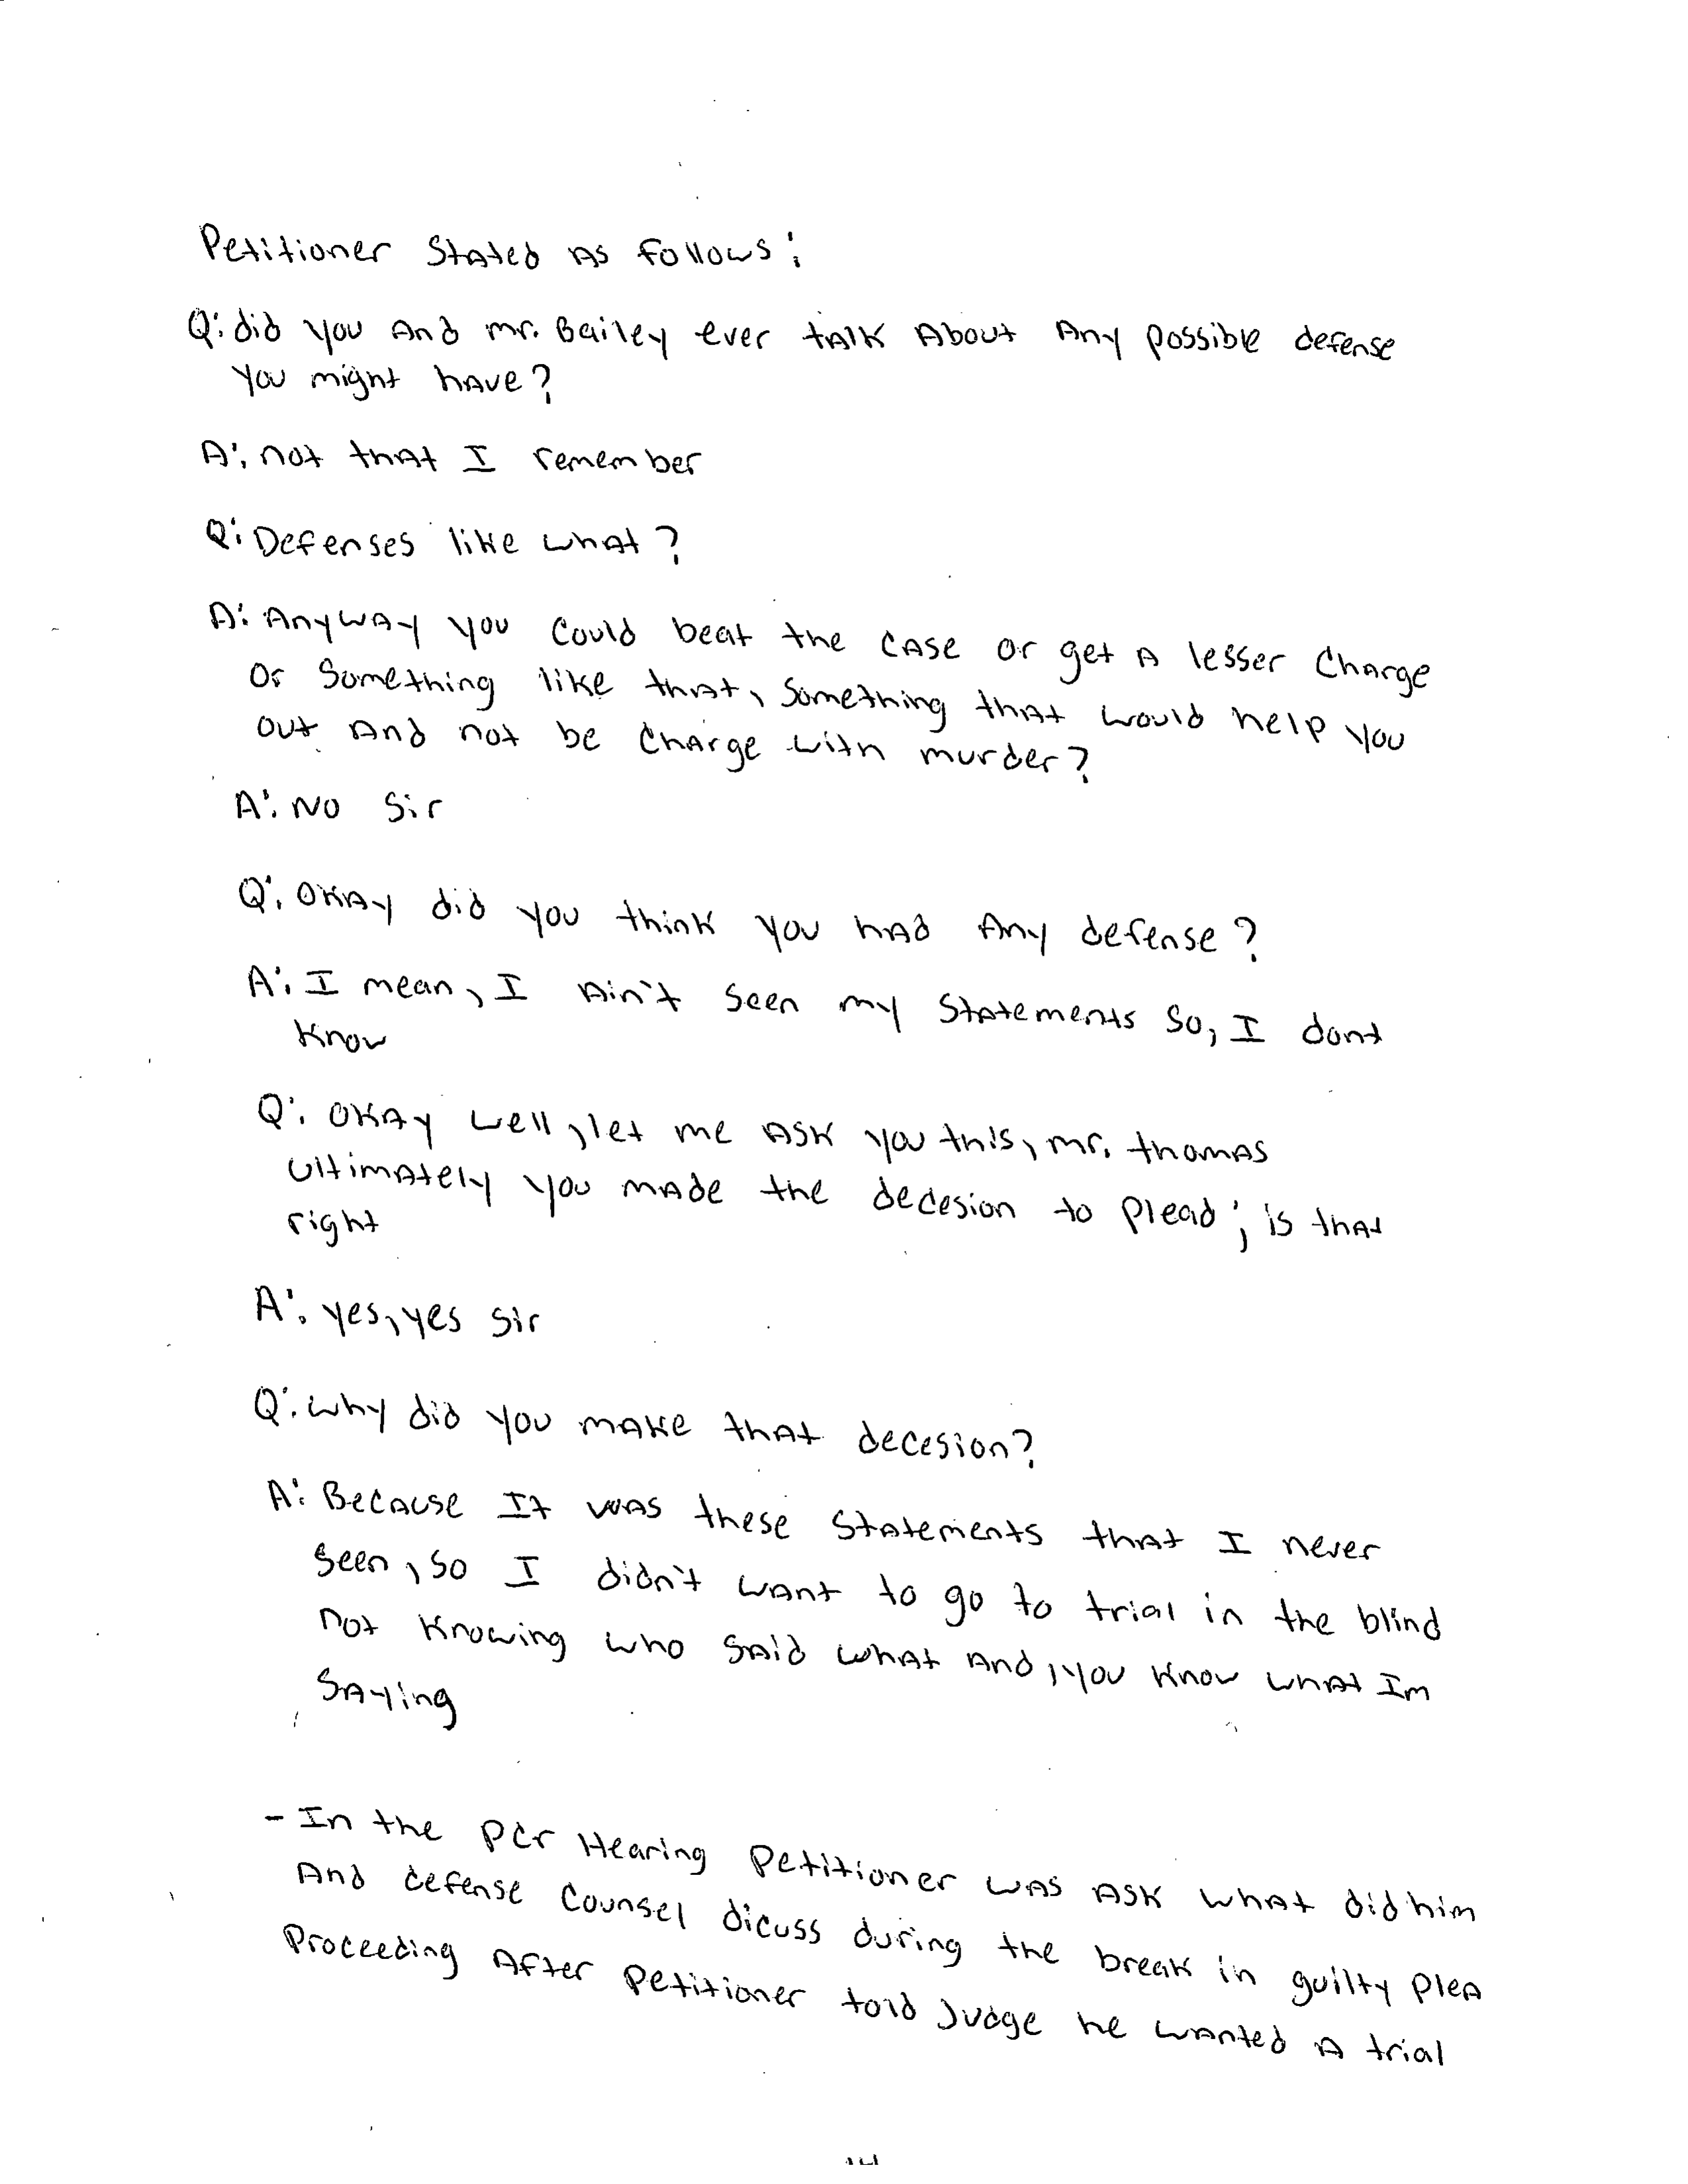 Petitioner Stated As follows:
Q: did you And mr. Bailey ever talk About Any possible defense
you might have?
A: not that I remember
Q: Defenses like what?
A: Anyway you could beat the case or get A lesser Charge
Or Something like that, Something that would help you
out And not be charge with murder?
A: No Sir
Q: Okay did you think you had Any defense?
A: I mean, I Ain't seen my Statements So, I dont
Know
Q: Okay well, let me Ask you this, mr. thomas
Ultimately you made the decesion to plead; is that
right
A: yes, yes sir
Q: why did you make that decesion?
A: Because It was these Statements that I never
seen, so I didn't want to go to trial in the blind
not knowing who said what and, you know what Im
saying
- In the PCr Hearing Petitioner was Ask what did him
And defense Counsel dicuss during the break in guilty plea
Proceeding After Petitioner told Judge he wanted A trial